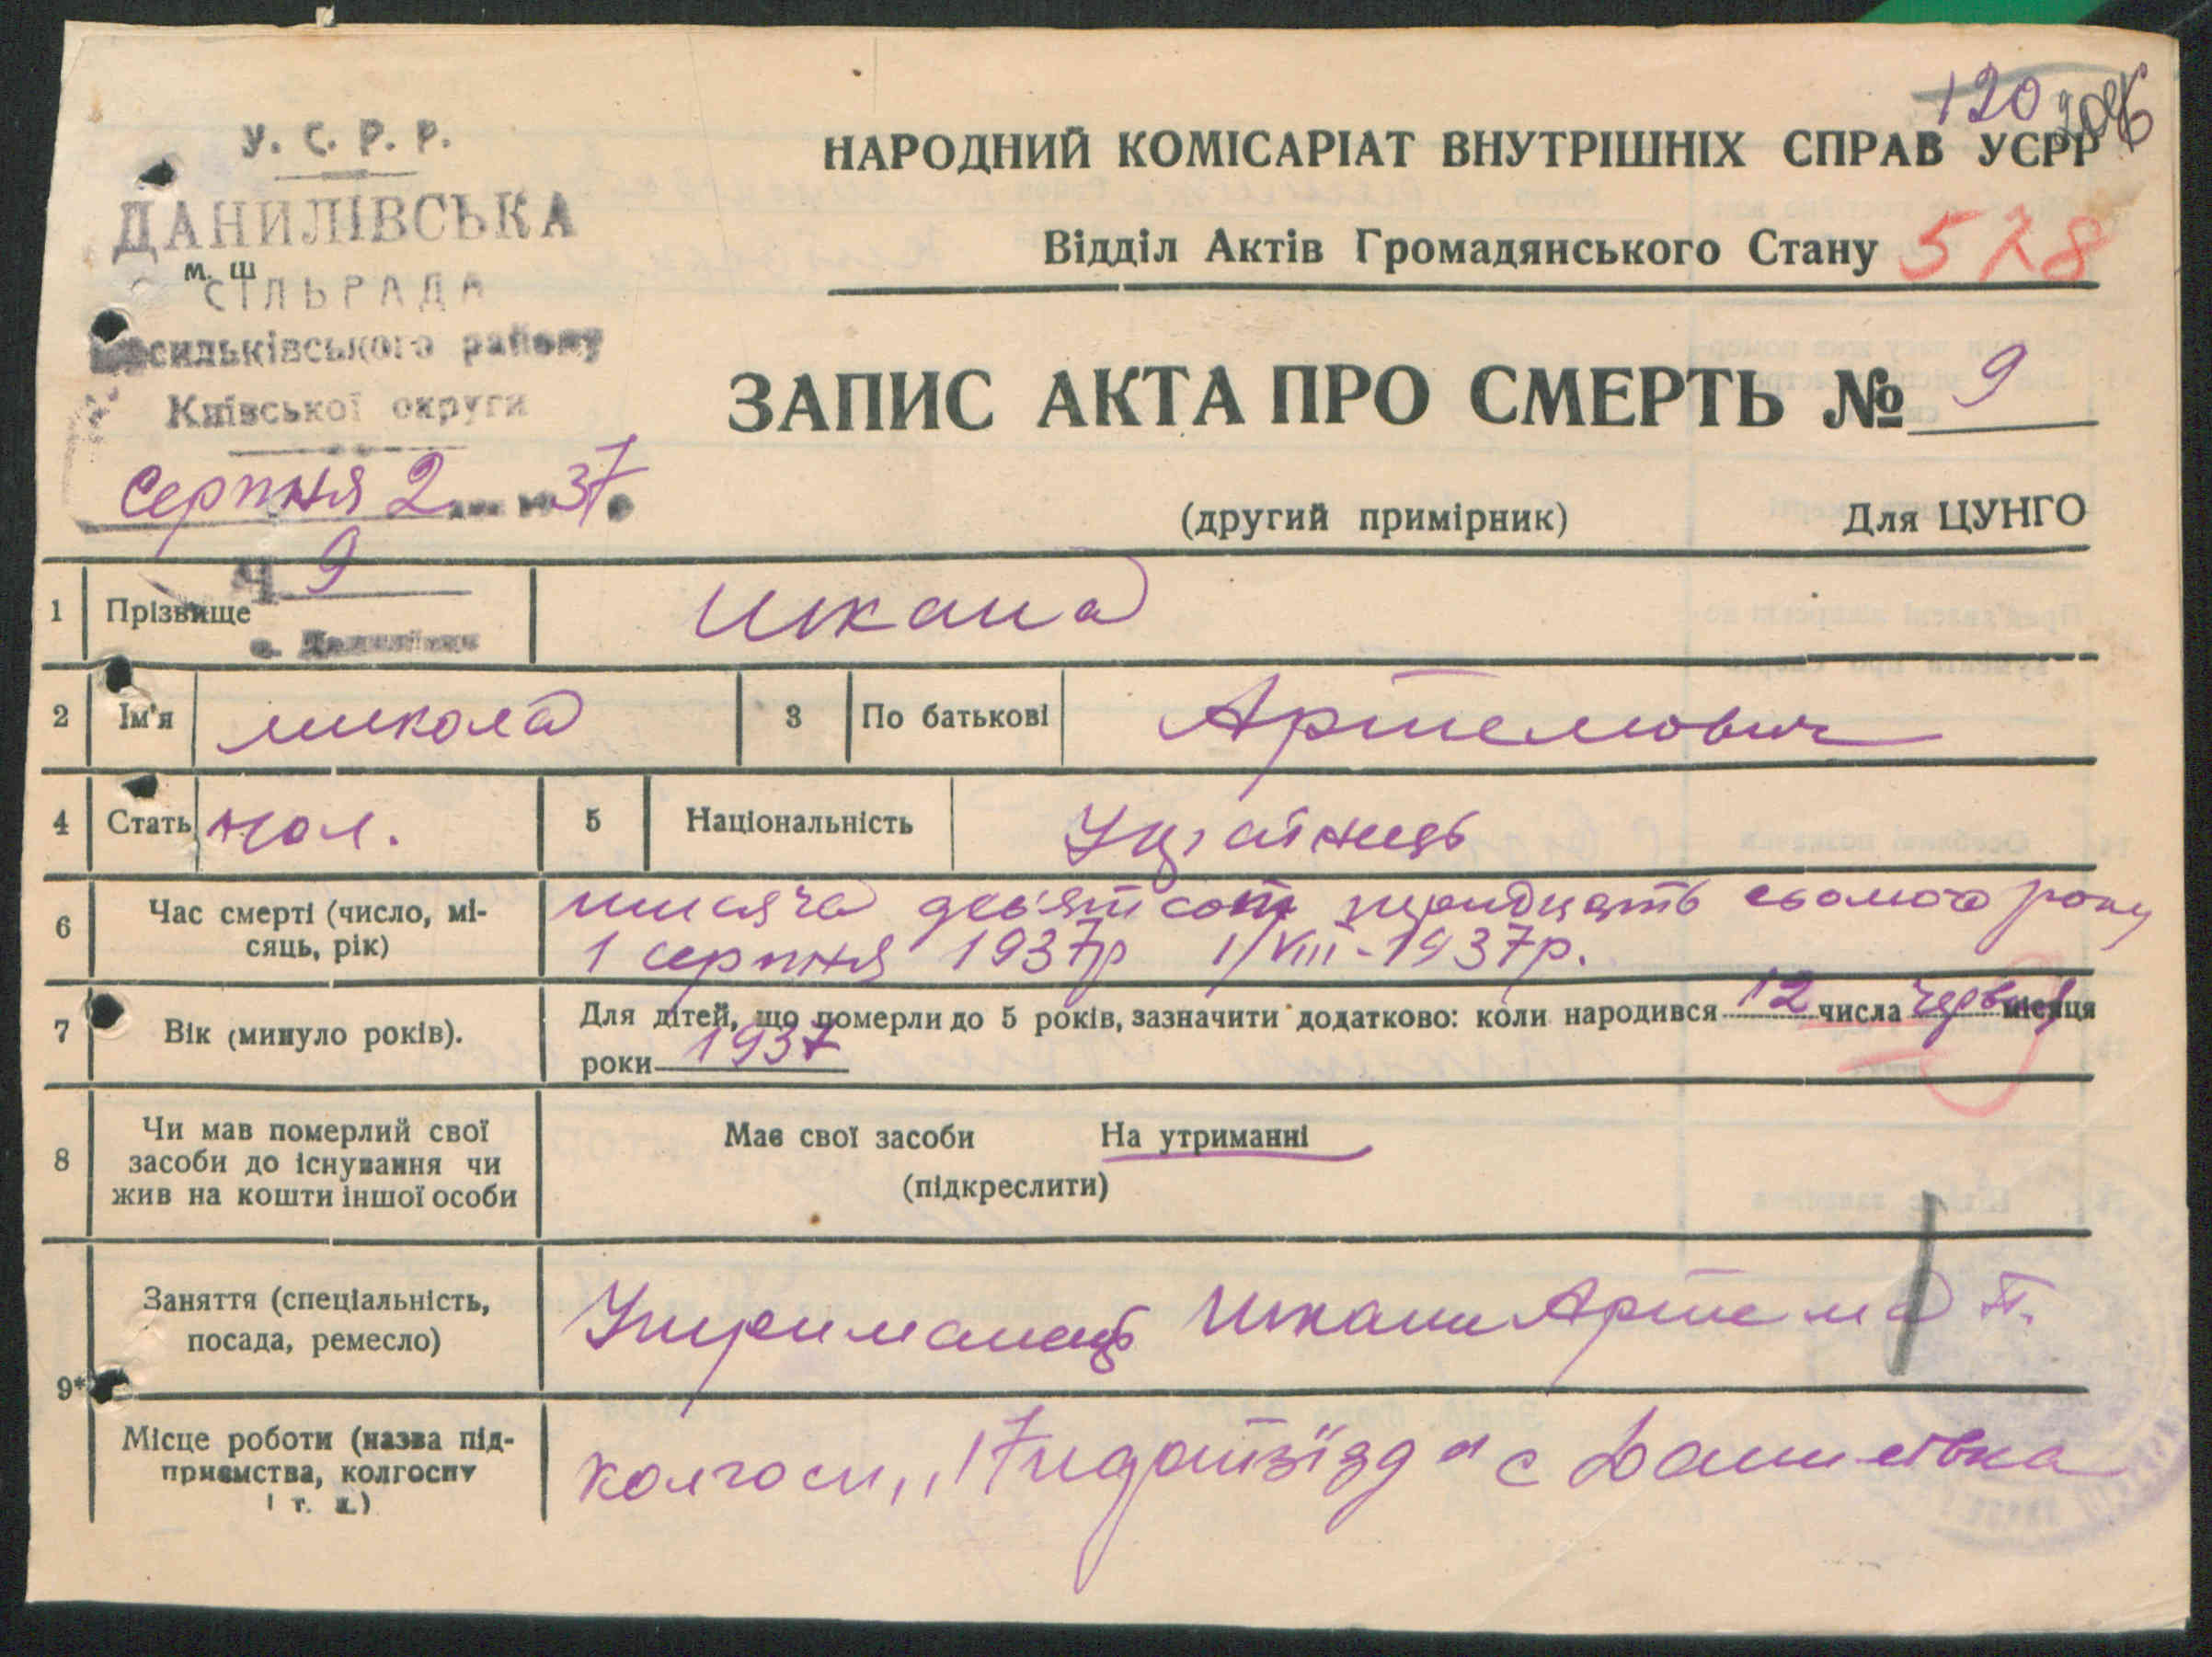 120
У. С. Р. Р.
ДАНИЛІВСЬКА
м. Ш
СІЛЬРАДА
Васильківського району
Київської округи
серпня 2 37
Ч 9
с. Данилівка
НАРОДНИЙ КОМІСАРІАТ ВНУТРІШНІХ СПРАВ УСРР
Відділ Актів Громадянського Стану 578
ЗАПИС АКТА ПРО СМЕРТЬ № 9
(другий примірник) Для ЦУНГО
1 Прізвище Шкапа
2 Ім'я микола 3 По батькові Артемович
4 Стать чол. 5 Національність Українець
6 Час смерті (число, мі-
сяць, рік)
тисяча дев'ятсот тридцять сьомого року
1 серпня 1937р 1/VIII-1937р.
7 Вік (минуло років).
Для дітей, що померли до 5 років, зазначити додатково: коли народився 12 числа червня місяця
роки 1937
8 Чи мав померлий свої
засоби до існування чи
жив на кошти іншої особи
Має свої засоби На утриманні
(підкреслити)
Заняття (спеціальність,
посада, ремесло)
Утриманець Шкапи Артема П.
9*
Місце роботи (назва під-
приємства, колгоспу
і т. д.)
колгосп „17 партз'їзд" с Данилівка